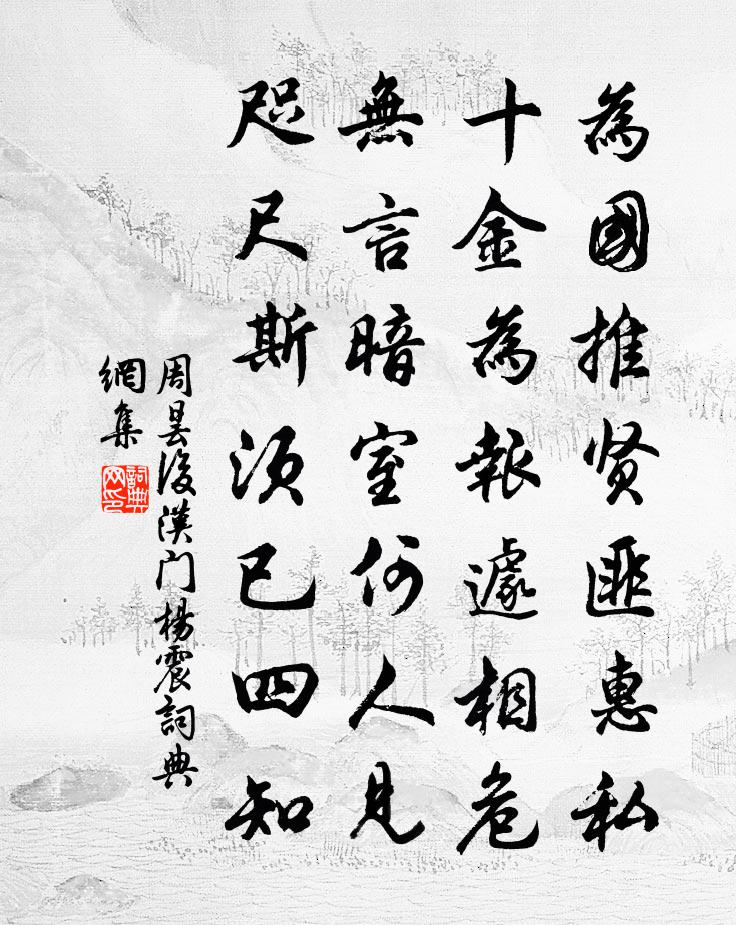 為國推贤匪惠私
十金為報遽相危
無言暗室何人見
咫尺斯須已四知
周昙後漢门楊震詞典
網集
詞典
网印